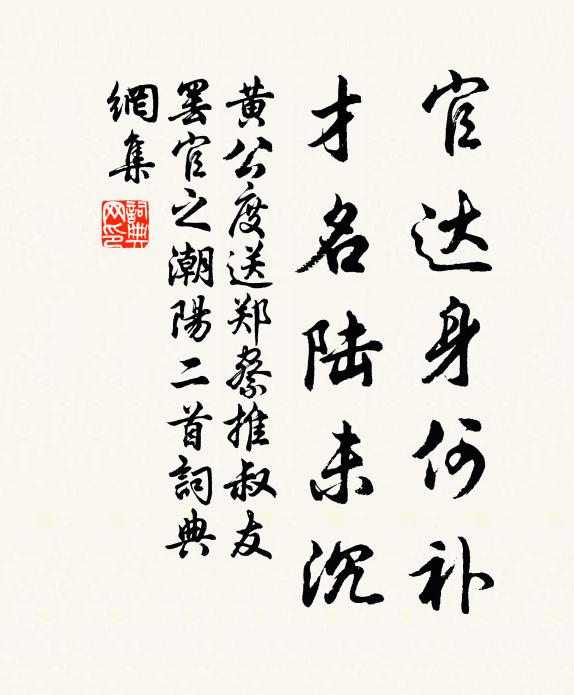 官达身何补
才名陆未沉
黄公度送郑察推叔友
罢官之潮陽二首詞典
網集
詞典網印